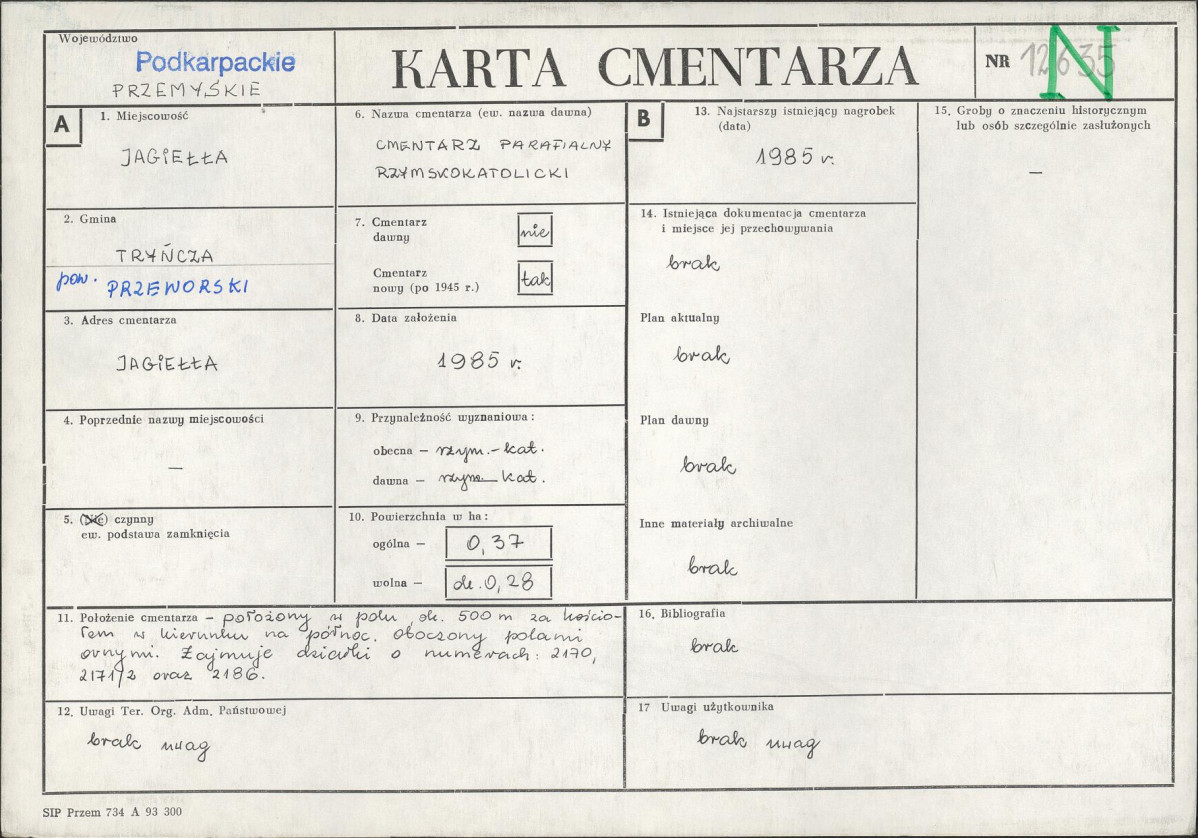 Województwo
Podkarpackie
PRZEMYSKIE
KARTA CMENTARZA
NR 12635
N
A
1. Miejscowość
JAGIEŁŁA
2. Gmina
TRYŃCZA
pow. PRZEWORSKI
3. Adres cmentarza
JAGIEŁŁA
4. Poprzednie nazwy miejscowości
—
5. (Nie) czynny
ew. podstawa zamknięcia
6. Nazwa cmentarza (ew. nazwa dawna)
CMENTARZ PARAFIALNY
RZYMSKOKATOLICKI
7. Cmentarz
dawny
nie
Cmentarz
nowy (po 1945 r.)
tak
8. Data założenia
1985 r.
9. Przynależność wyznaniowa:
obecna – rzym.-kat.
dawna – rzym. kat.
10. Powierzchnia w ha:
ogólna – 0,37
wolna – ok. 0,28
B
13. Najstarszy istniejący nagrobek
(data)
1985 r.
14. Istniejąca dokumentacja cmentarza
i miejsce jej przechowywania
brak
Plan aktualny
brak
Plan dawny
brak
Inne materiały archiwalne
brak
15. Groby o znaczeniu historycznym
lub osób szczególnie zasłużonych
—
11. Położenie cmentarza – położony w polu, ok. 500 m za kościo-
łem w kierunku na północ. Otoczony polami
ornymi. Zajmuje działki o numerach: 2170,
2171/2 oraz 2186.
12. Uwagi Ter. Org. Adm. Państwowej
brak uwag
16. Bibliografia
brak
17 Uwagi użytkownika
brak uwag
SIP Przem 734 A 93 300